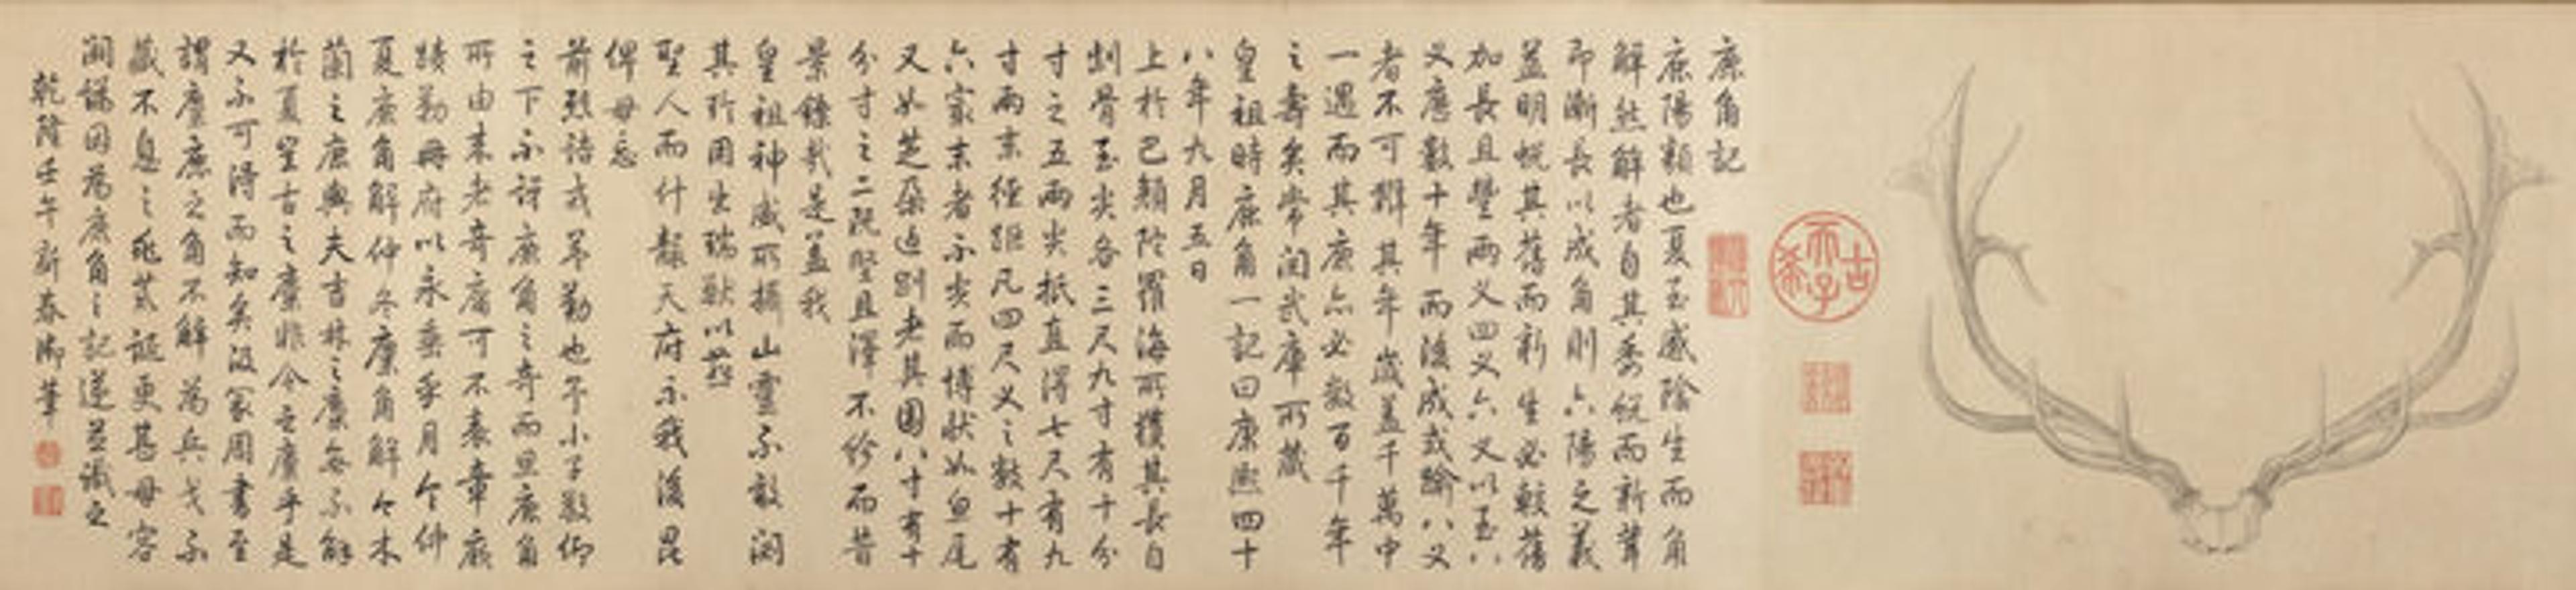 古希天子
鹿角記
鹿陽類也夏至感陰生而角
解然解者自其委蛻而新茸
即漸長以成角則亦陽之義
蓋明蛻其舊而新生必較舊
加長且豐兩乂四乂六乂以至八
乂應數十年而後成或踰八乂
者不可辨其年歲蓋千萬中
一遇而其鹿亦必數百千年
之壽矣常閱武庫所藏
皇祖時鹿角一記曰康熙四十
八年九月五日
上於巴顏陀羅海所獲其長自
骨至尖各三尺九寸有十分
寸之五兩尖抵直得七尺有九
寸兩末徑距凡四尺乂之數十有
六家末者不尖而博狀如魚尾
又如芝朵近則者其圍八寸有十
分寸之二既堅且澤不紾而昔
景鑠哉是蓋我
皇祖神威所攝山靈不敢閟
其所用生瑞獸以
聖人而什襲天府示我後昆
俾毋忘
前烈詰戎茀勤也予小子敬仰
之下不訝鹿角之奇而思鹿角
所由來者奇庸可不表章厥
蹟勒冊府以永垂乎月令仲
夏鹿角解仲冬麋角解今木
蘭之鹿與夫吉林之麋無不解
於夏豈古之麋非今之麋乎是
又不可得而知矣汲冢周書至
謂麋鹿之角不解為兵戈不
藏不息之兆荒誕更甚毋容
闢謬因為鹿角之記遂並識之
乾隆壬午新春御筆